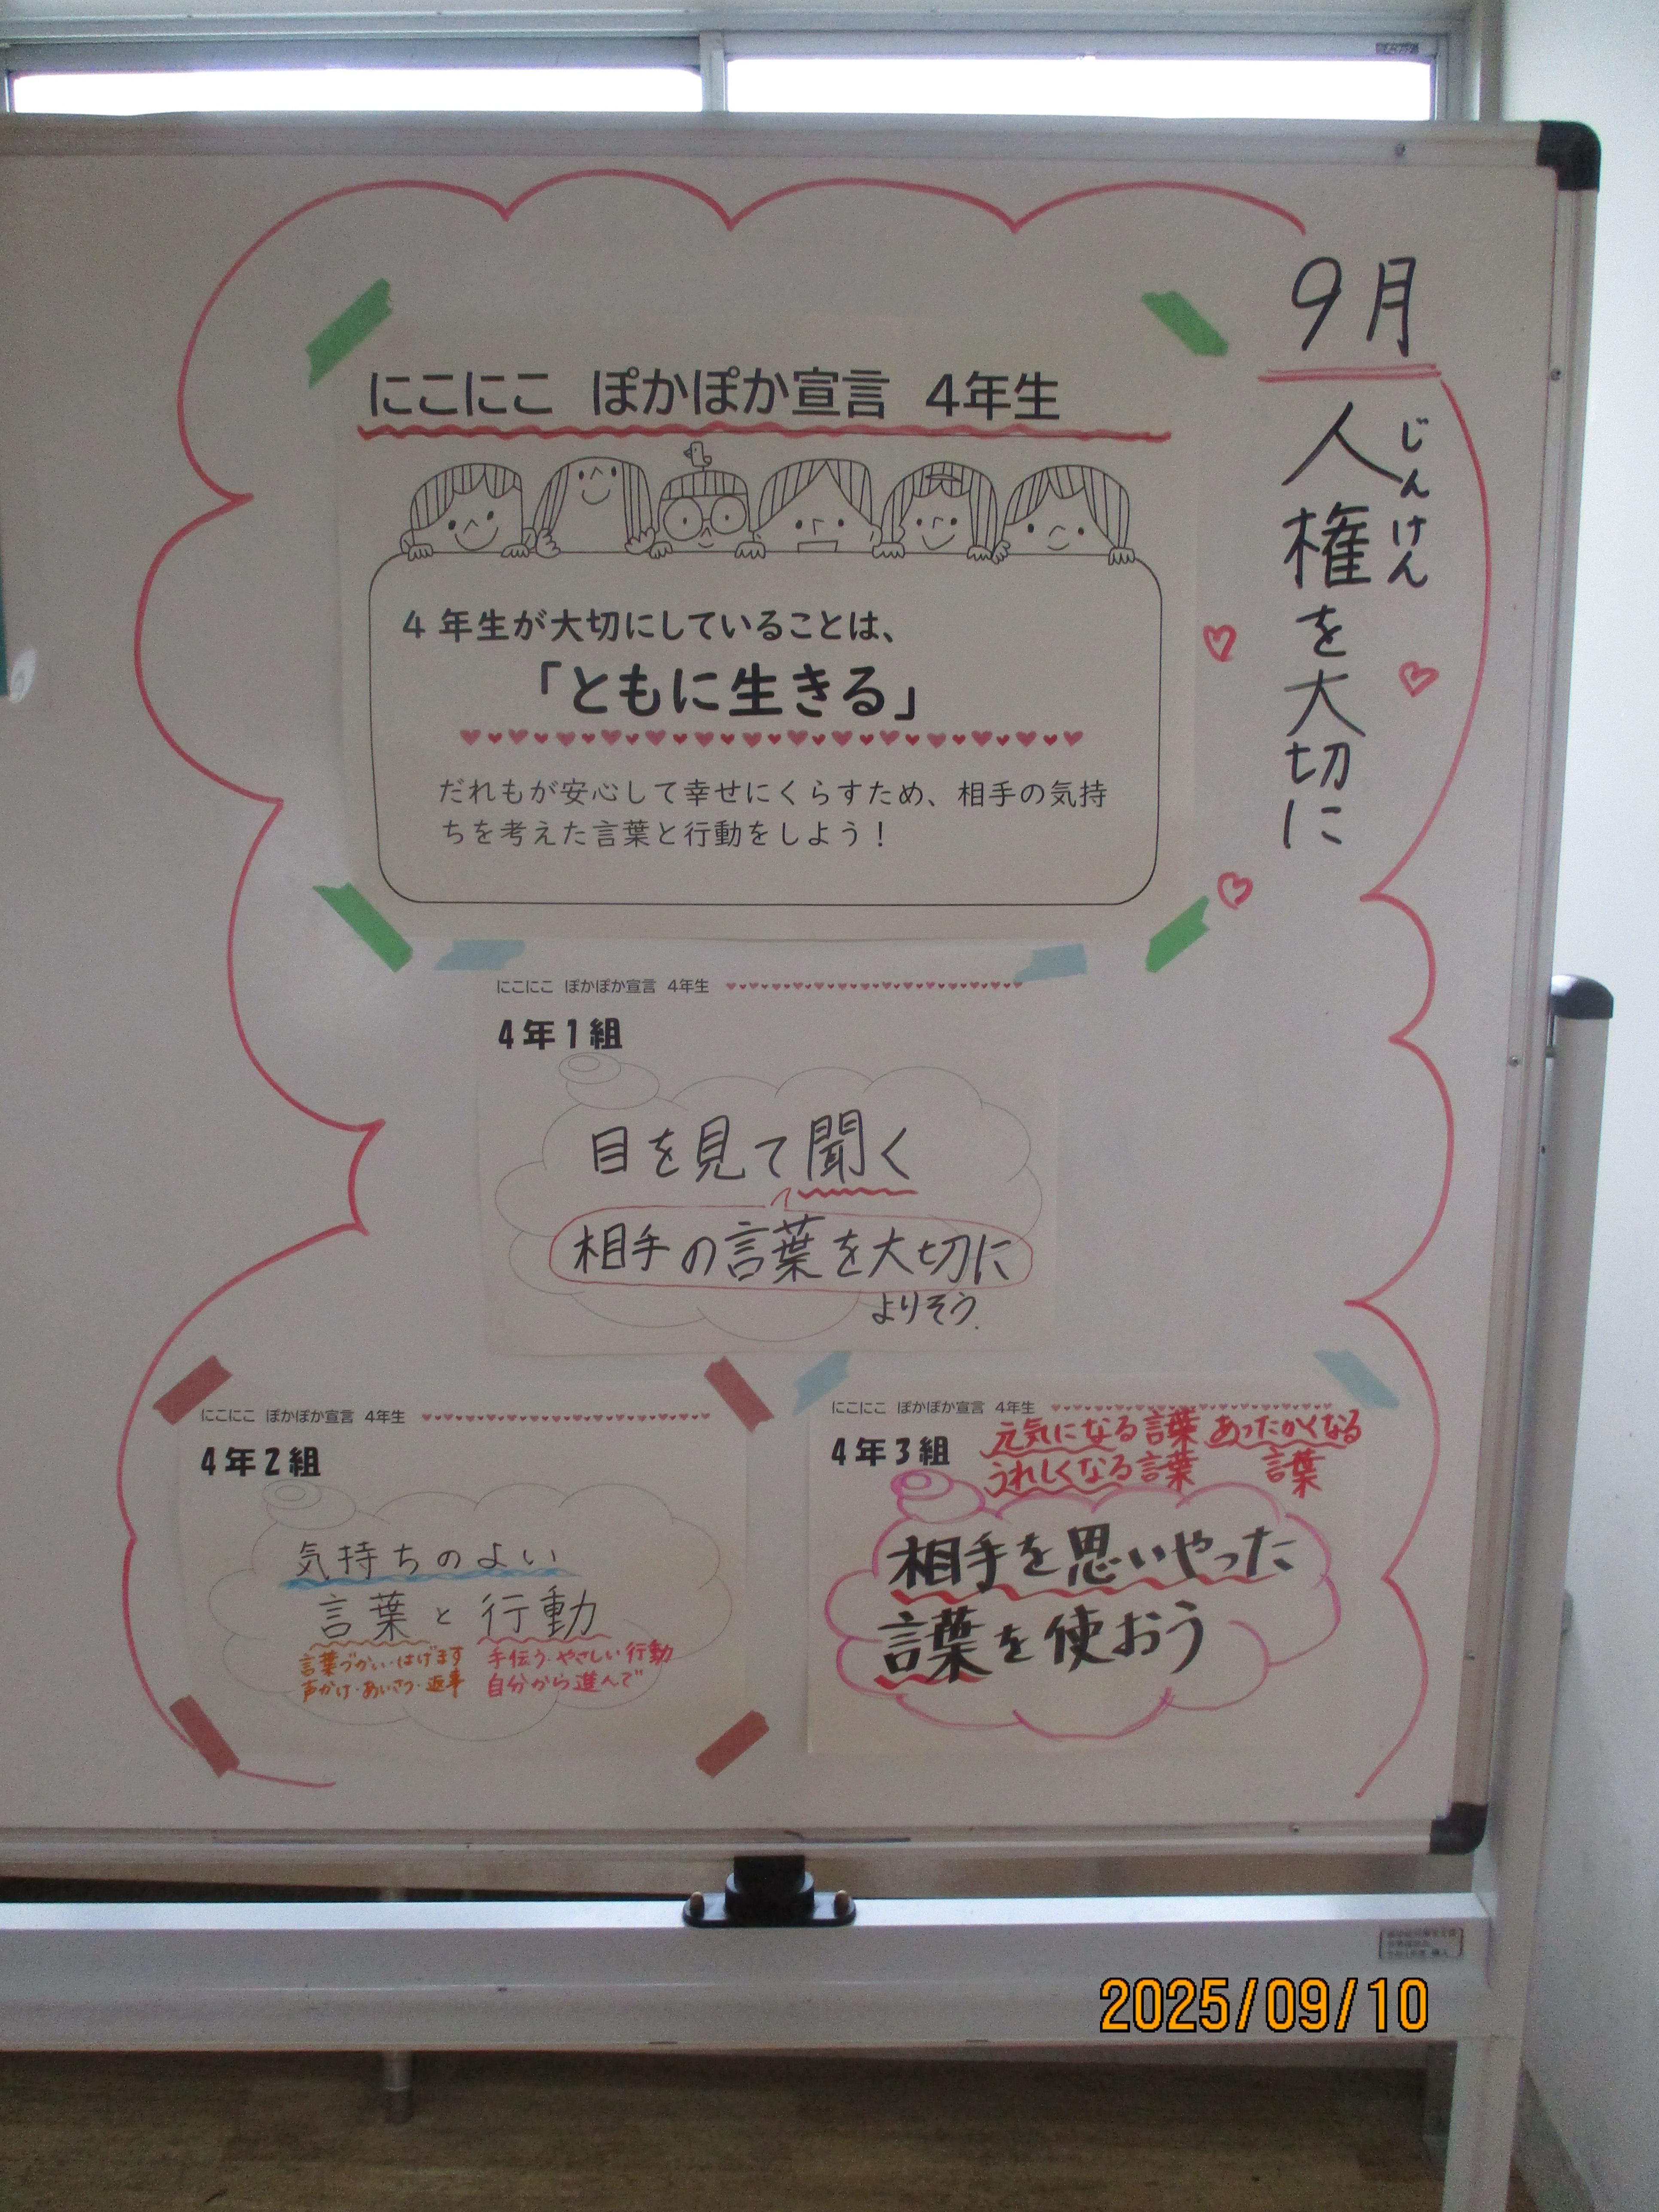 9月
人権を大切に
じんけん
にこにこ ぽかぽか宣言 4年生
4年生が大切にしていることは、
「ともに生きる」
だれもが安心して幸せにくらすため、相手の気持
ちを考えた言葉と行動をしよう！
にこにこ ぽかぽか宣言 4年生
4年1組
目を見て聞く
相手の言葉を大切に
よりそう.
にこにこ ぽかぽか宣言 4年生
4年2組
気持ちのよい
言葉と行動
言葉づかい・はげます
声かけ・あいさつ・返事
手伝う・やさしい行動
自分から進んで
にこにこ ぽかぽか宣言 4年生
4年3組
元気になる言葉
うれしくなる言葉
あったかくなる
言葉
相手を思いやった
言葉を使おう
2025/09/10